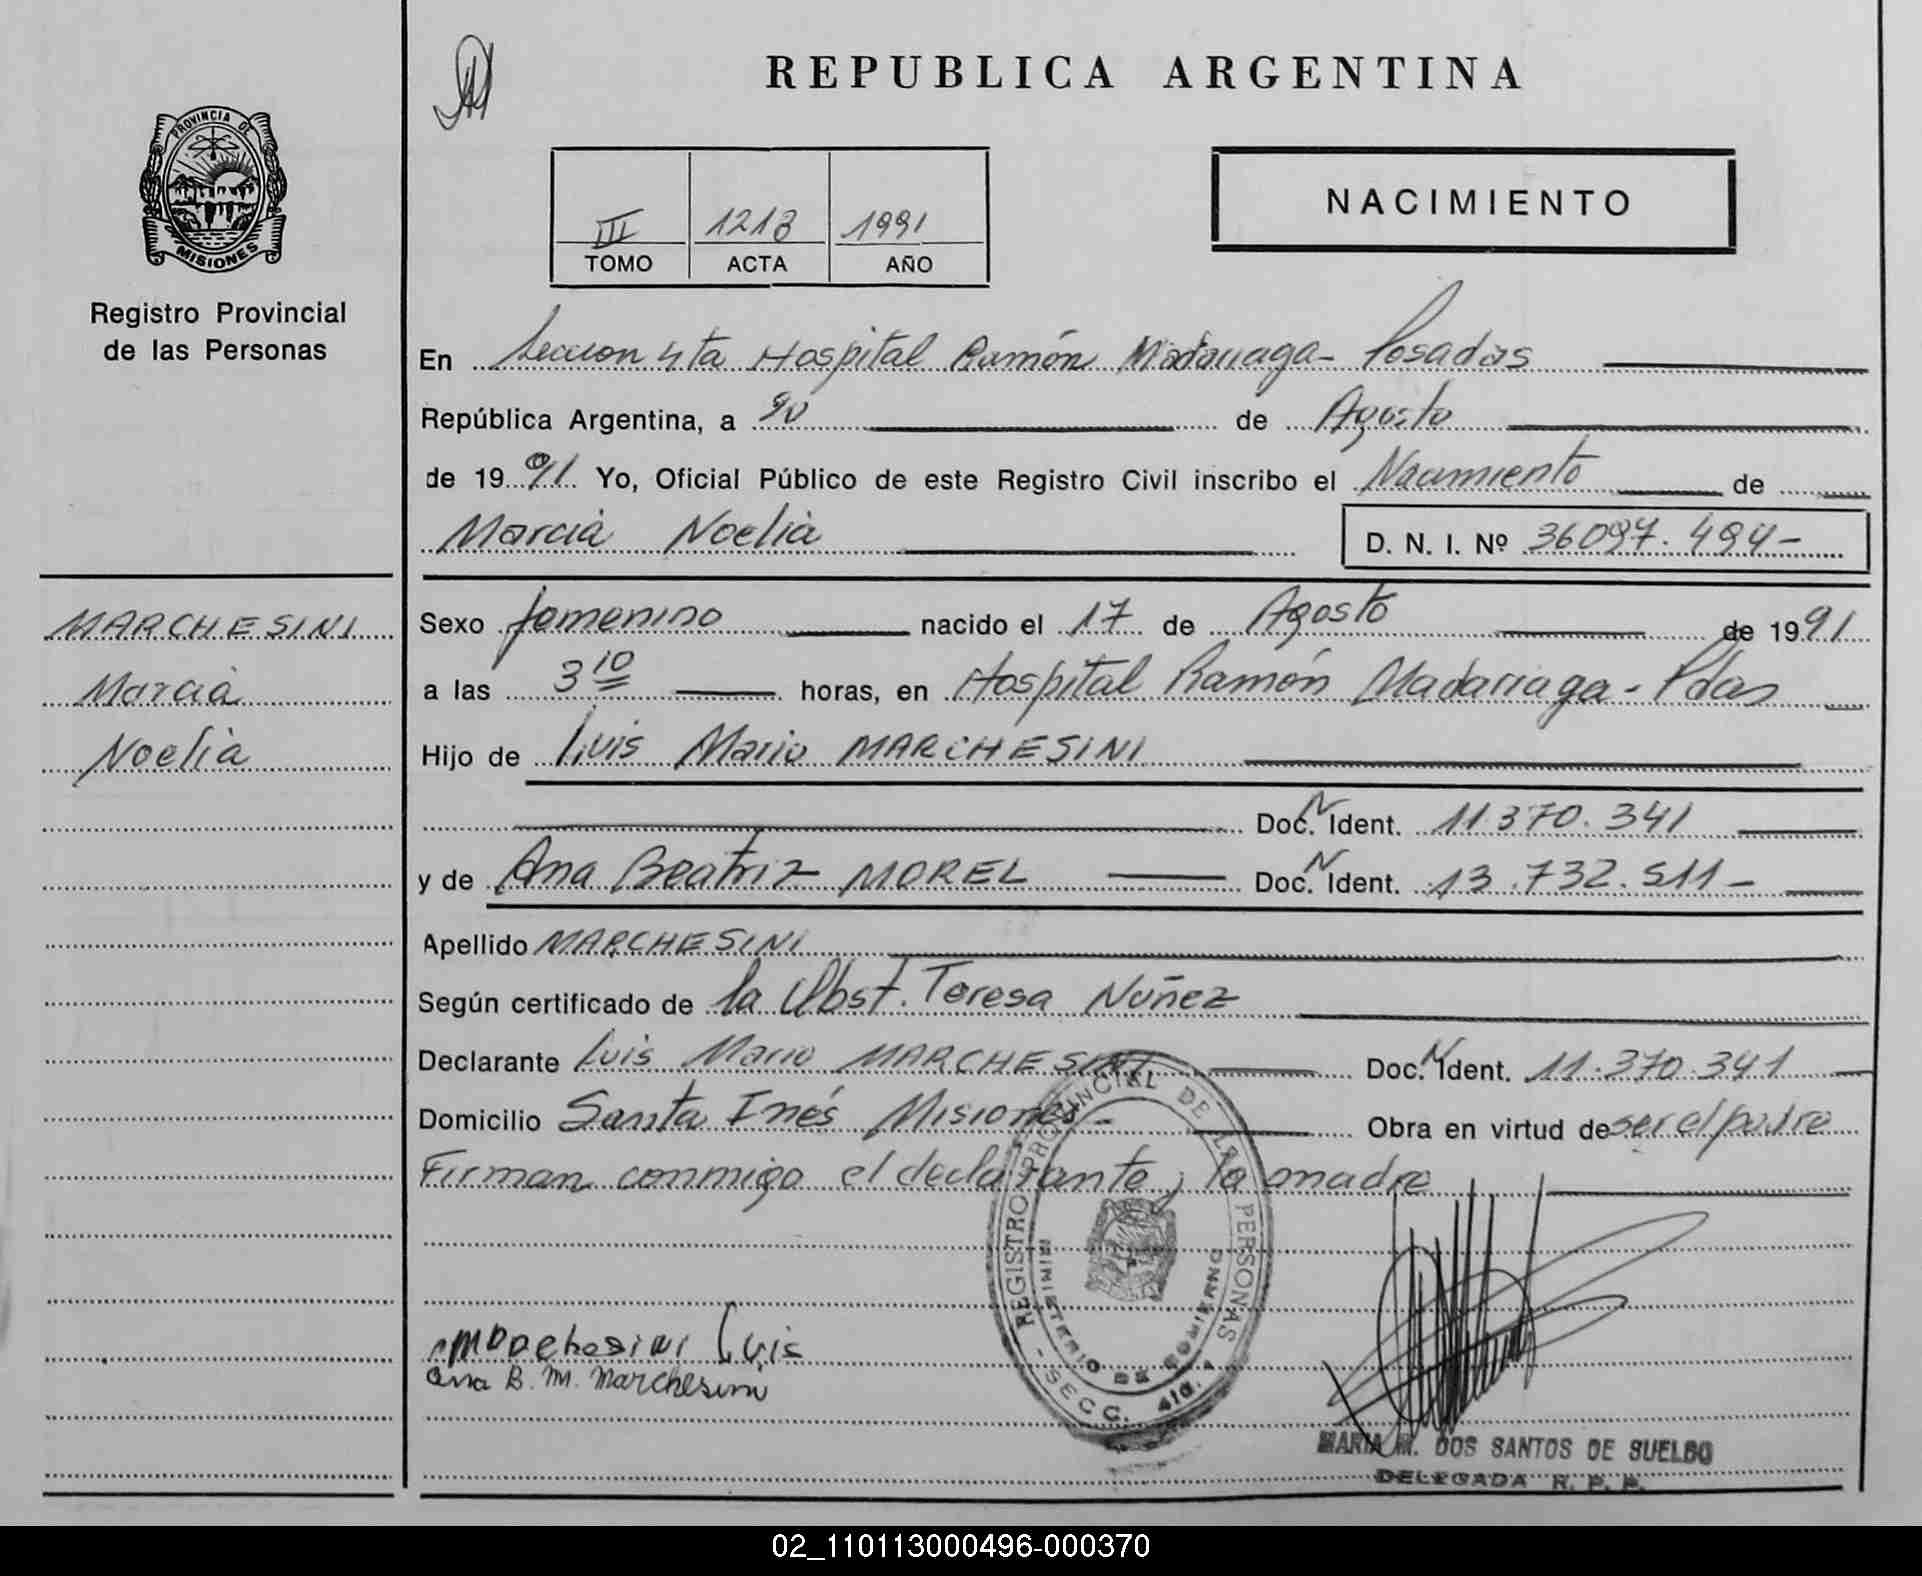 REPUBLICA ARGENTINA
PROVINCIA DE
MISIONES
Registro Provincial
de las Personas
III 1213 1991
TOMO ACTA AÑO
NACIMIENTO
En Seccion 4ta Hospital Ramón Madariaga - Posadas
República Argentina, a 20 de Agosto
de 1991 Yo, Oficial Público de este Registro Civil inscribo el Nacimiento de
Marcia Noelia D. N. I. Nº 36097.494-
MARCHESINI
Marcia
Noelia
Sexo femenino nacido el 17 de Agosto de 1991
a las 3 10 horas, en Hospital Ramón Madariaga - Pdas
Hijo de Luis Mario MARCHESINI
Doc. N Ident. 11.370.341
y de Ana Beatriz MOREL Doc. N Ident. 13.732.511-
Apellido MARCHESINI
Según certificado de la Obst. Teresa Nuñez
Declarante Luis Mario MARCHESINI Doc. N Ident. 11.370.341
Domicilio Santa Inés Misiones - Obra en virtud de ser el padre
Firman conmigo el declarante y la madre
REGISTRO PROVINCIAL DE LAS PERSONAS
MINISTERIO DE GOBIERNO
- SECC. 4ta.
Marchesini Luis
Ana B. M. Marchesini
MARIA M. DOS SANTOS DE SUELDO
DELEGADA R. P. P.
02_110113000496-000370